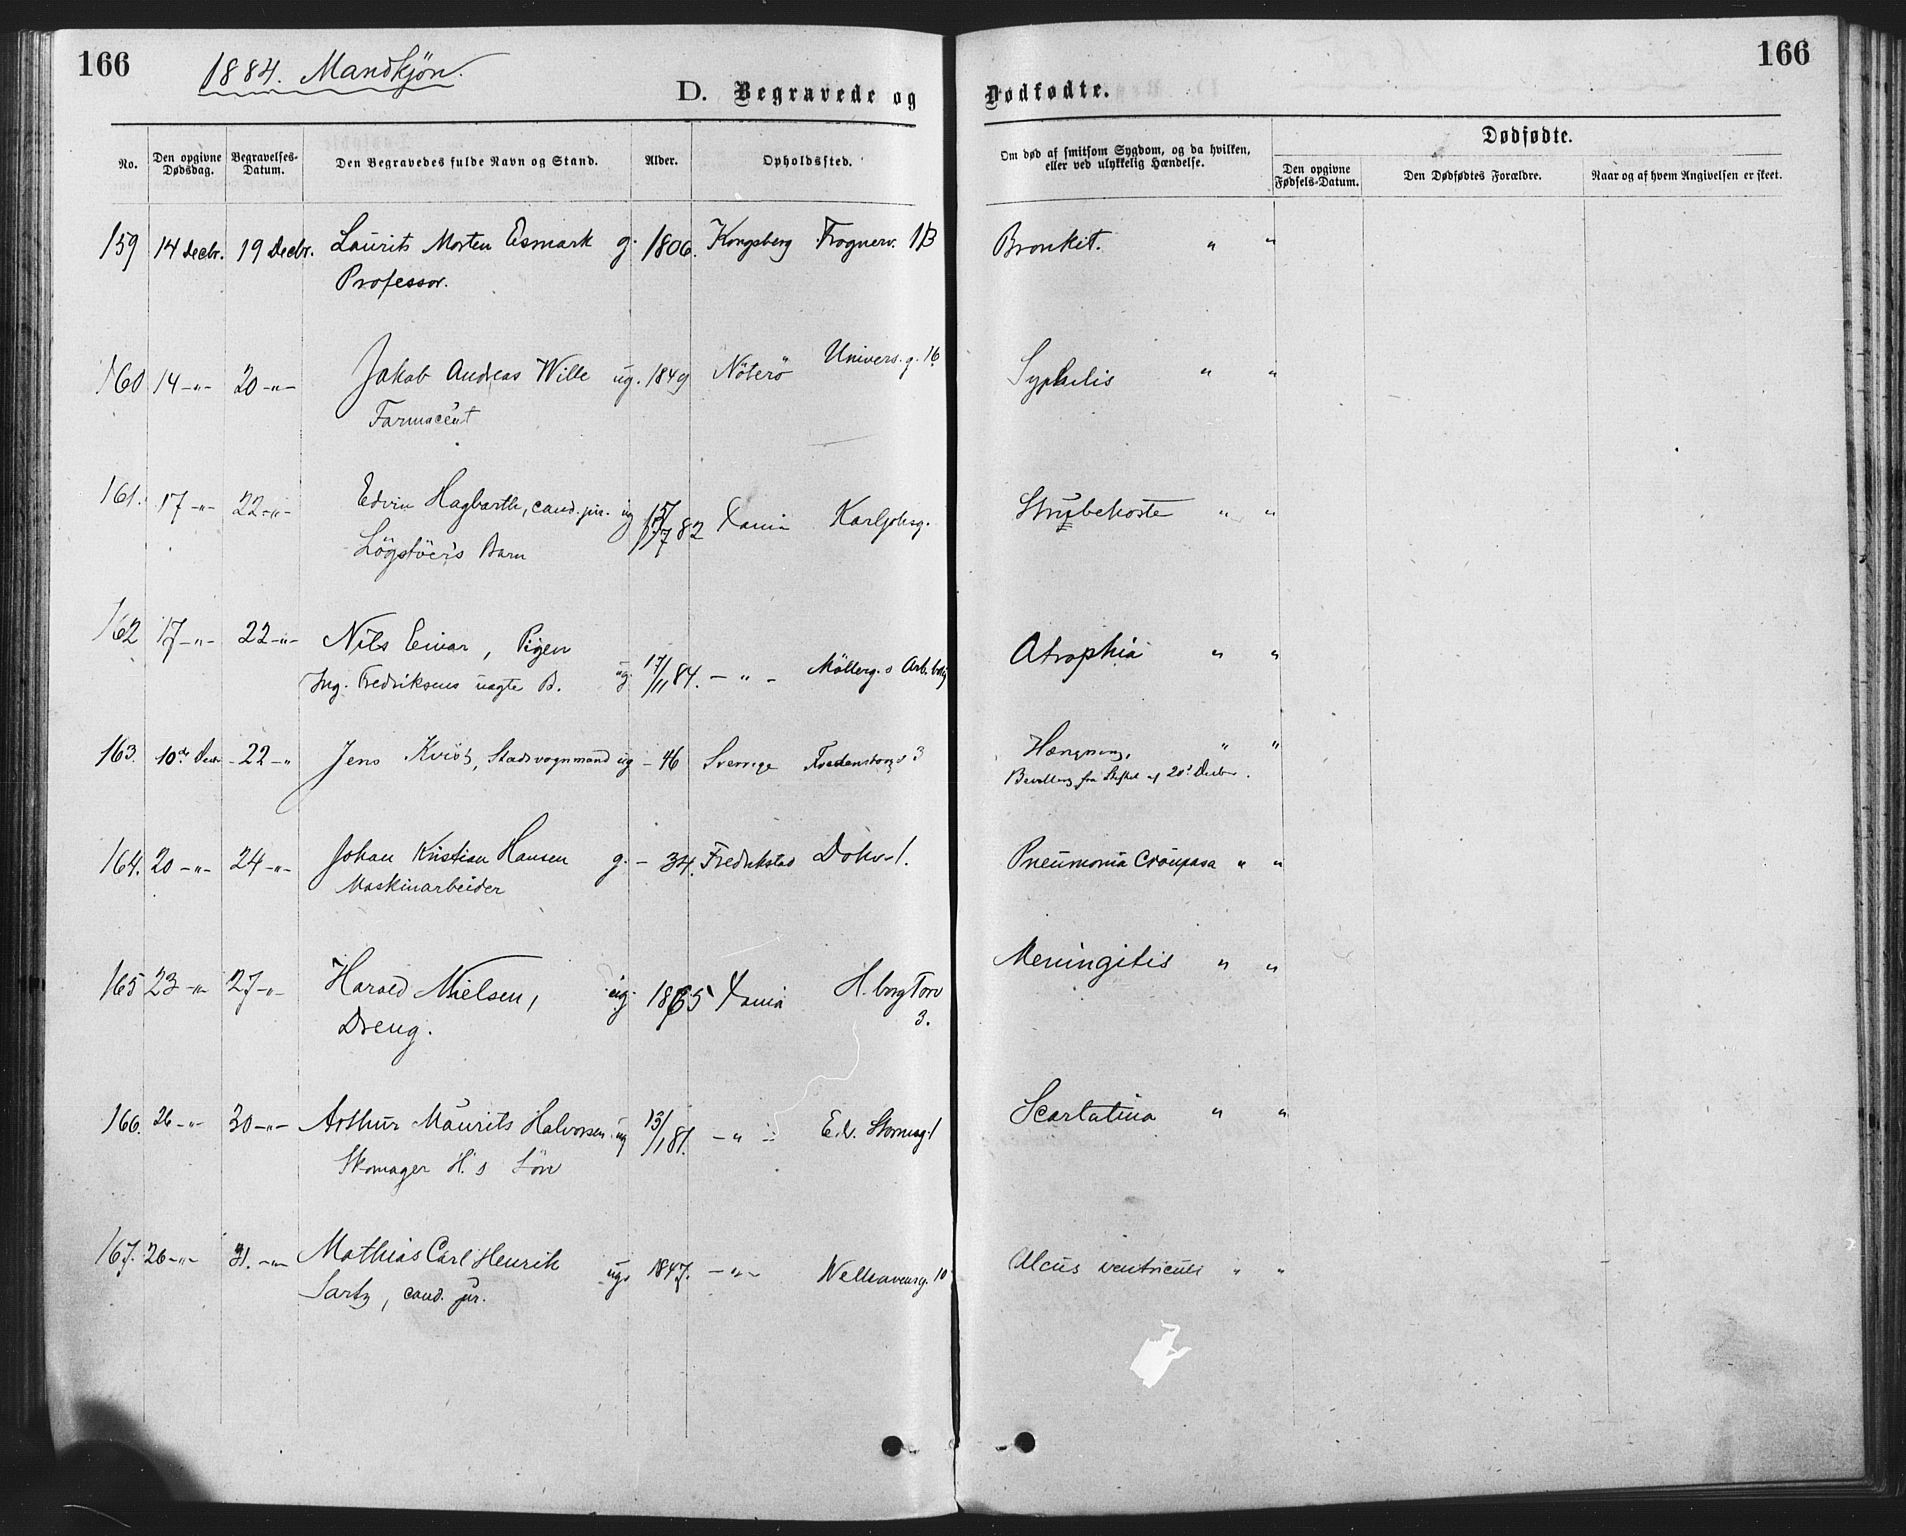 166
1884. Mandkjøn.
166
D. Begravede og Dødfødte.
No.
Den opgivne Dødsdag.
Begravelses-Datum.
Den Begravedes fulde Navn og Stand.
Alder.
Opholdssted.
Om død af smitsom Sygdom, og da hvilken, eller ved ulykkelig Hændelse.
Dødfødte.
Den opgivne Fødsels-Datum.
Den Dødfødtes Forældre.
Naar og af hvem Angivelsen er skeet.
159 14 Decbr. 19 Decbr. Laurits Morten Esmark g. 1806. Kongsberg Frognerv. 1B Bronkit. " "
Professor.
160 14 -"- 20 -"- Jakob Andreas Wille ug. 1849 Nöterö Univers.g. 16 Syphilis " "
Farmacéut
161. 17 -"- 22 -"- Edvin Hagbarth, cand. jur. ug 82 Xania Karljohsg. Strubehoste " "
Lögstöer's Barn
162 17 -"- 22 -"- Nils Einar, Pigen
Ing. Fredriksens uægte B. ug. 17/11 84. - " - Möllerg. s Arb. bolig Atrophia " "
163. 10de Decbr - 22 -" Jens Kvist, Stadsvognmand ug - 46 Sverrige 3 Hængning, " "
Bevilling fra Stiftet af 20de Decbr.
164. 20 -"- 24 -"- Johan Kristian Hansen g. - 34. Fredrikstad Dokv. 1. Pneumonia Croupøsa " "
Maskinarbeider
165 23 -"- 27 -"- Harald Nielsen, ug. 1865 Xania H. borg Torv 3. Meningitis " "
Dreng.
166. 26 -"- 30 -"- Arthur Maurits Halvorsen ug 13/1 81. - " - Edv. Stormsg. 1 Scarlatina " "
Skomager H.'s Sön
167. 26 -"- 31. -"- Mathias Carl Henrik ug. 1847. -"- Welhavensg. 10 Ulcus ventriculi " "
Sartz, cand. jur.